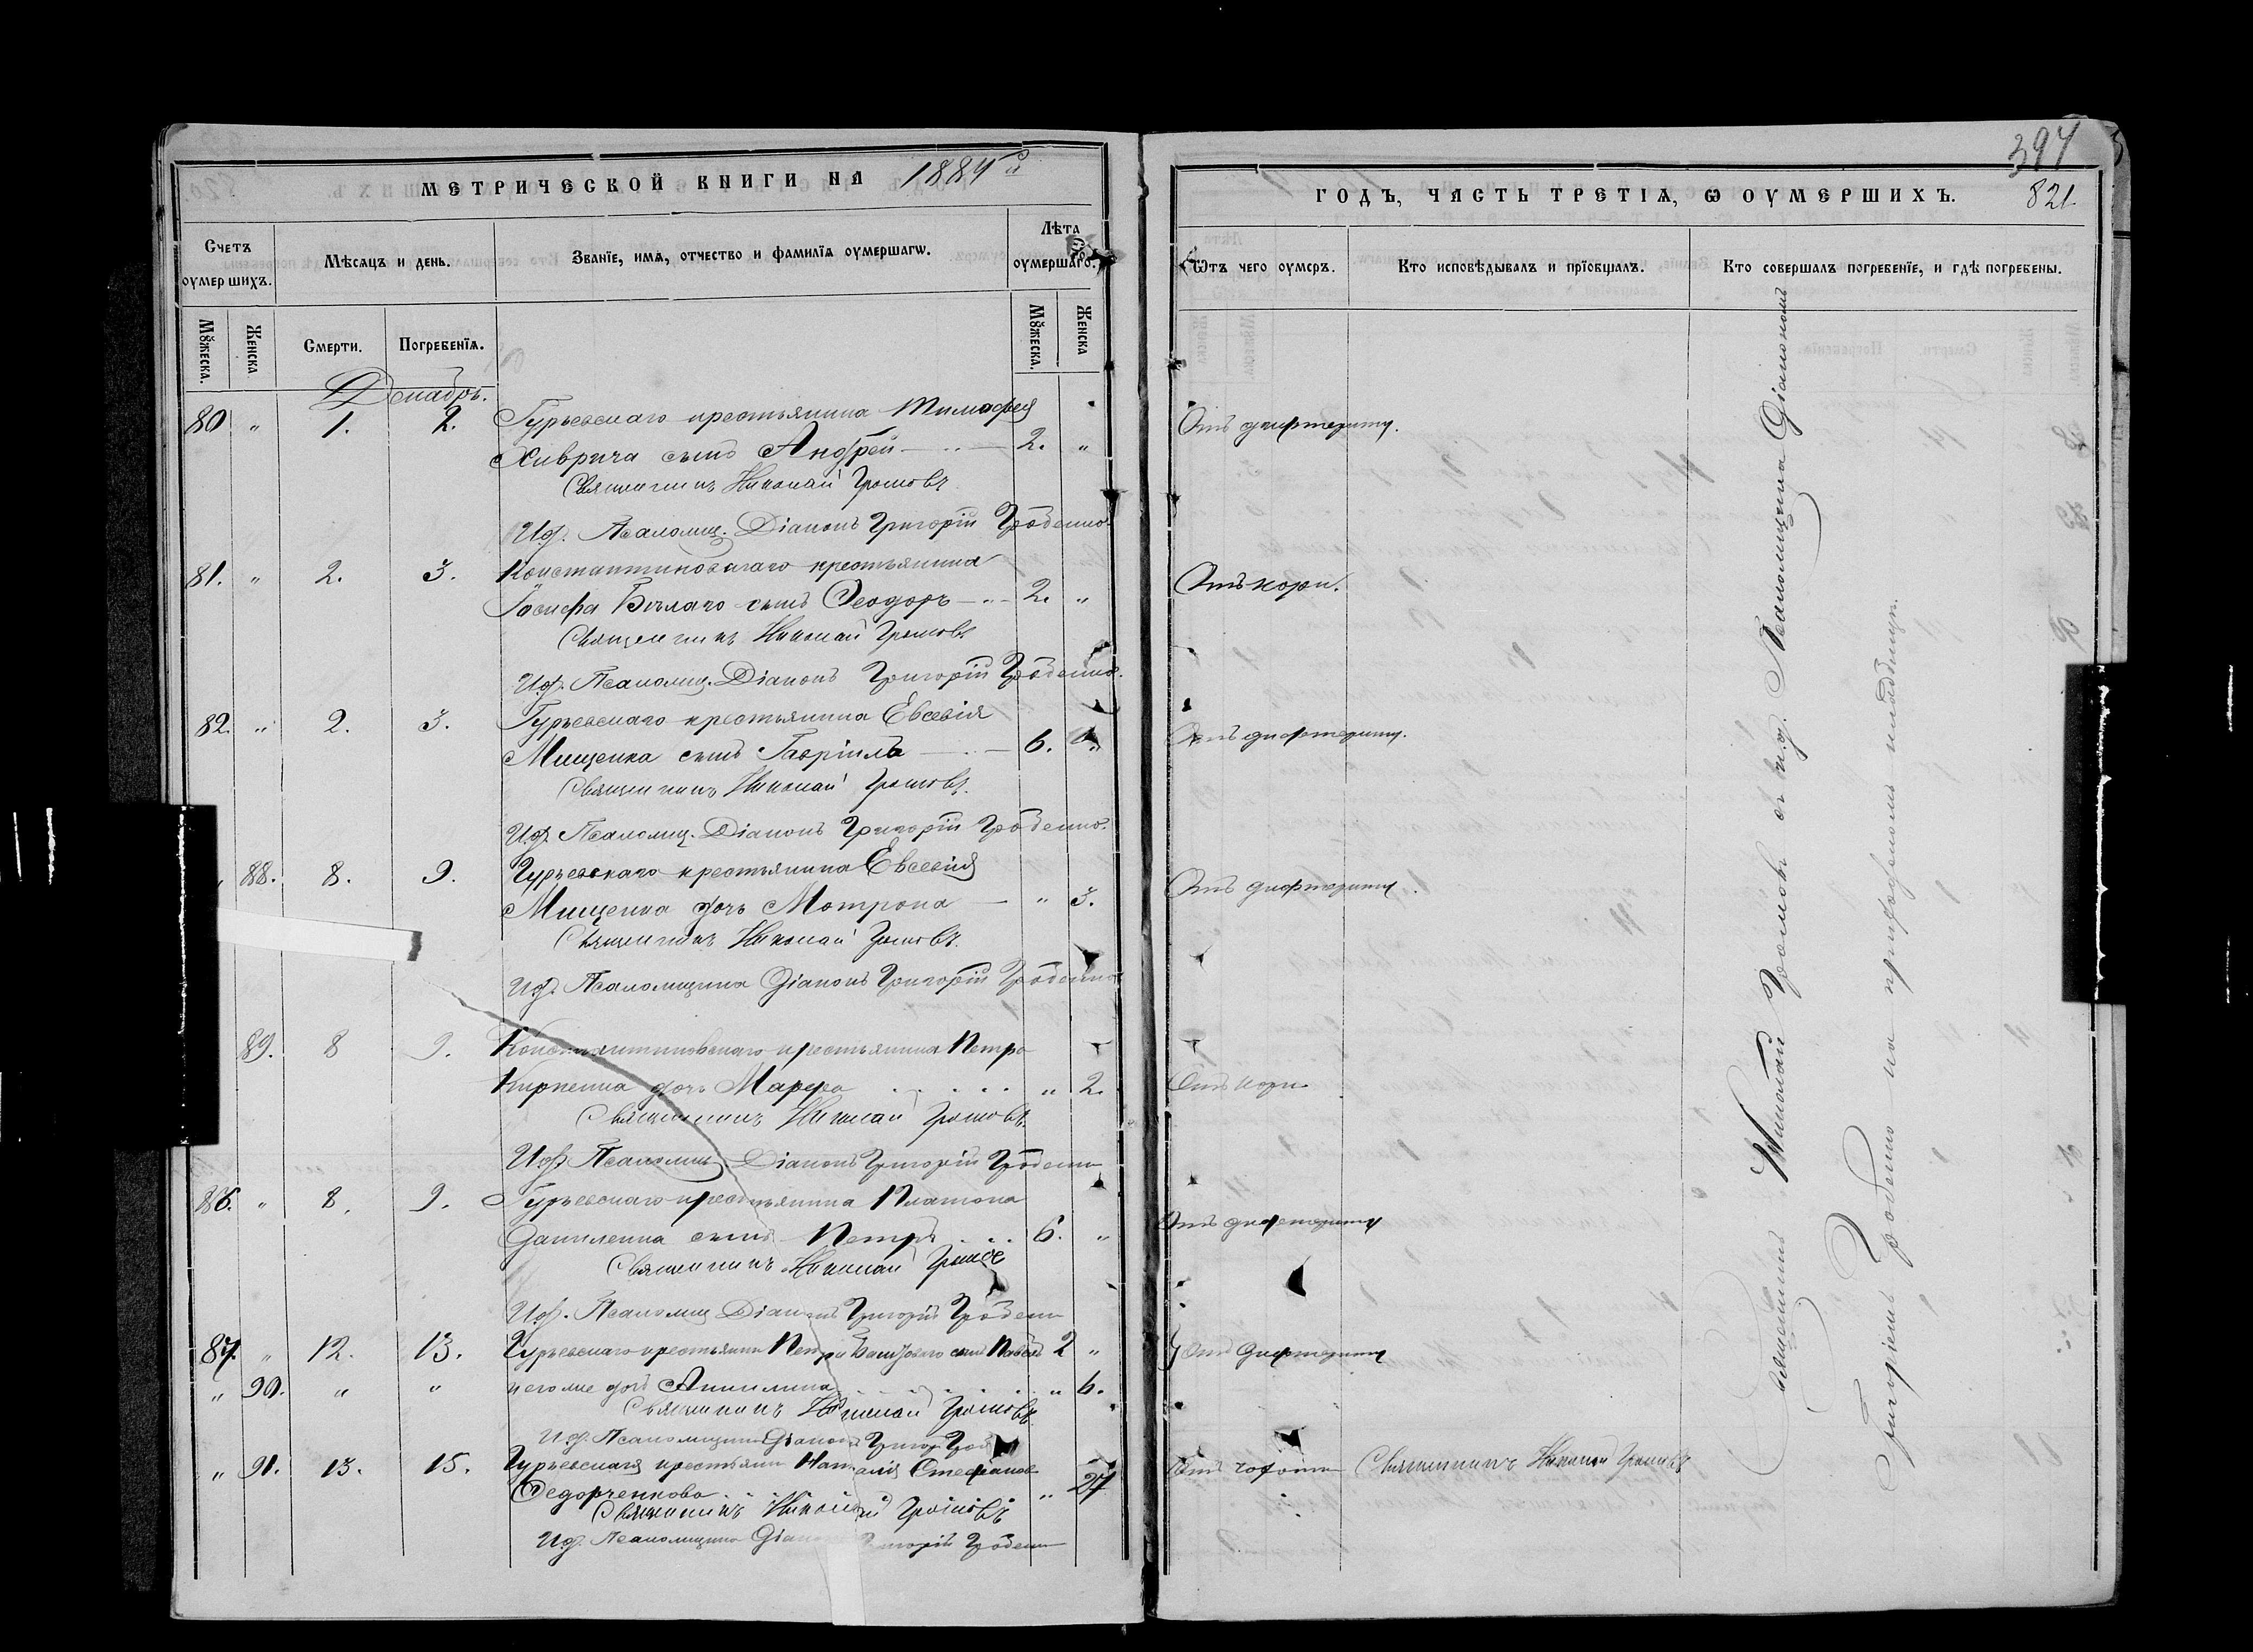 МЕТРИЧЕСКОЙ КНИГИ НА 1884 й
Счетъ оумершихъ.
Мѣсяцъ и день.
Званїе, имѧ, отчество и фамилїѧ оумершагѡ.
Лѣта оумершаго.
Мꙋжеска.
Женска
Смерти.
Погребенїѧ.
Мꙋжеска.
Женска
Декабрь.
80 " 1. 2. Гурьевскаго крестьянина Тимофея
Хиврича сынъ Андрей 2. "
Священникъ Николай Громовъ
И.д. Псаломщ. Діаконъ Григорій
81. " 2. 3. Константиновскаго крестьянина
Іосифа Бѣлаго сынъ Ѳеодоръ 2. "
Священникъ Николай Громовъ
И.д. Псаломщ. Діаконъ Григорій
82. " 2. 3. Гурьевскаго крестьянина Евсевія
Мищенка сынъ Гавріилъ 6. "
Священникъ Николай Громовъ.
И.д. Псаломщ. Діаконъ Григорій
" 88. 8. 9. Гурьевскаго крестьянина Евсевія
Мищенка дочь Матрона " 3.
Священникъ Николай Громовъ.
И.д. Псаломщика Діаконъ Григорій
89. 8 9. Константиновскаго крестьянина Петра
дочь Марфа " 2.
Священникъ Николай Громовъ.
И.д. Псаломщ. Діаконъ Григорій
86. " 8. 9. Гурьевскаго крестьянина Платона
Даниленка сынъ Петръ 6. "
Священникъ Николай Громовъ
И.д. Псаломщ Діаконъ Григорій
87. " 12. 13. Гурьевскаго крестьянин Петра сынъ Павелъ 2 "
" 90. " " и его же дочь Акилина " 6.
Священникъ Николай Громовъ.
И.д. Псаломщика Діаконъ
" 91. 13. 15. Гурьевская крестьянк Наталія Стефанов
Ѳедорченкова " 27
Священникъ Николай Громовъ
И.д. Псаломщика Діаконъ Григорій
394
ГОДЪ, ЧАСТЬ ТРЕТІѦ, Ѡ ОУМЕРШИХЪ.
821.
Ѿтъ чего оумеръ.
Кто исповѣдывалъ и прїобщалъ.
Кто совершалъ погребенїе, и гдѣ погребены.
Отъ дифтериту.
Отъ кори.
Отъ дифтериту.
Отъ дифтериту.
Отъ кори
Отъ дифтериту
Отъ дифтериту
Отъ чахотки Священникъ Николай Громовъ
Священникъ Николай Громовъ съ и.д. Псаломщика Діакономъ
Григоріемъ на приходскомъ кладбищѣ.